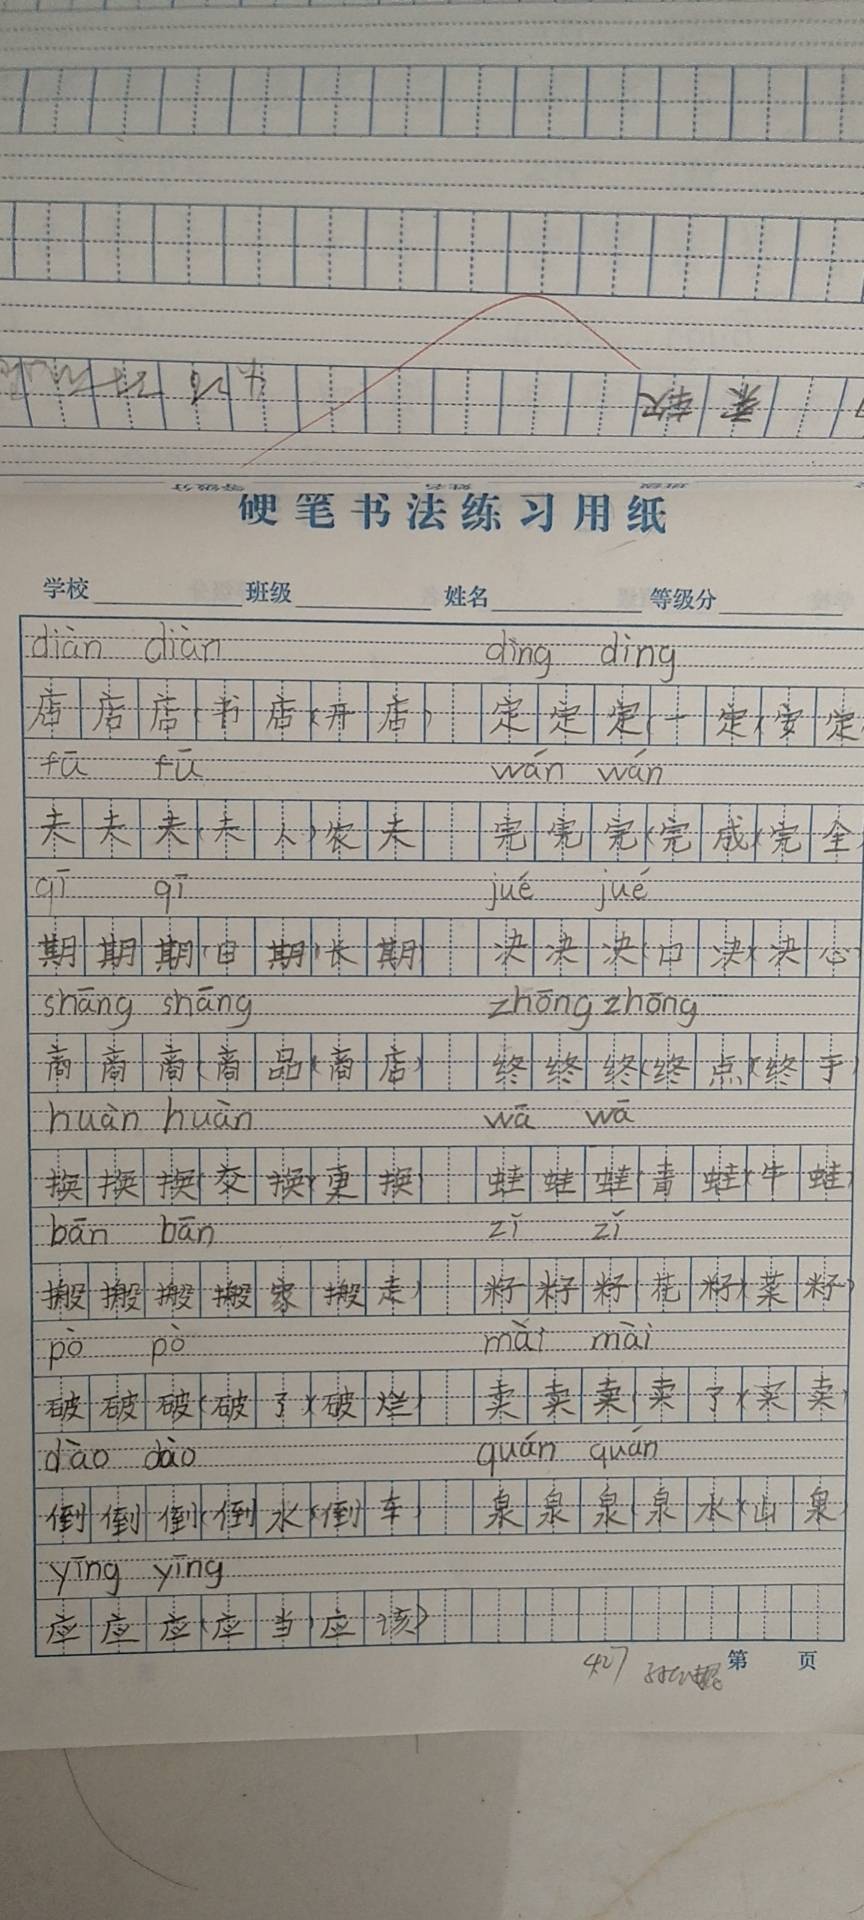 软 柔
硬笔书法练习用纸
学校 班级 姓名 等级分
diàn diàn dìng dìng
店店店(书店)(开店) 定定定(一定)(安定
fū fū wán wán
夫夫夫(夫人)农夫 完完完(完成)(完全)
qī qī jué jué
期期期(日期)长期) 决决决(口决)(决心
shāng shāng zhōng zhōng
商商商(商品)(商店) 终终终(终点)(终于)
huàn huàn wā wā
换换换(交换)(更换) 蛙蛙蛙(青蛙)(牛蛙)
bān bān zǐ zǐ
搬搬搬(搬家)搬走) 籽籽籽(花籽)(菜籽)
pò pò mài mài
破破破(破了)(破烂) 卖卖卖(卖了)(买卖)
dào dào quán quán
倒倒倒(倒水)(倒车) 泉泉泉(泉水)(山泉)
yīng yīng
应应应(应当)应该)
427
第 页